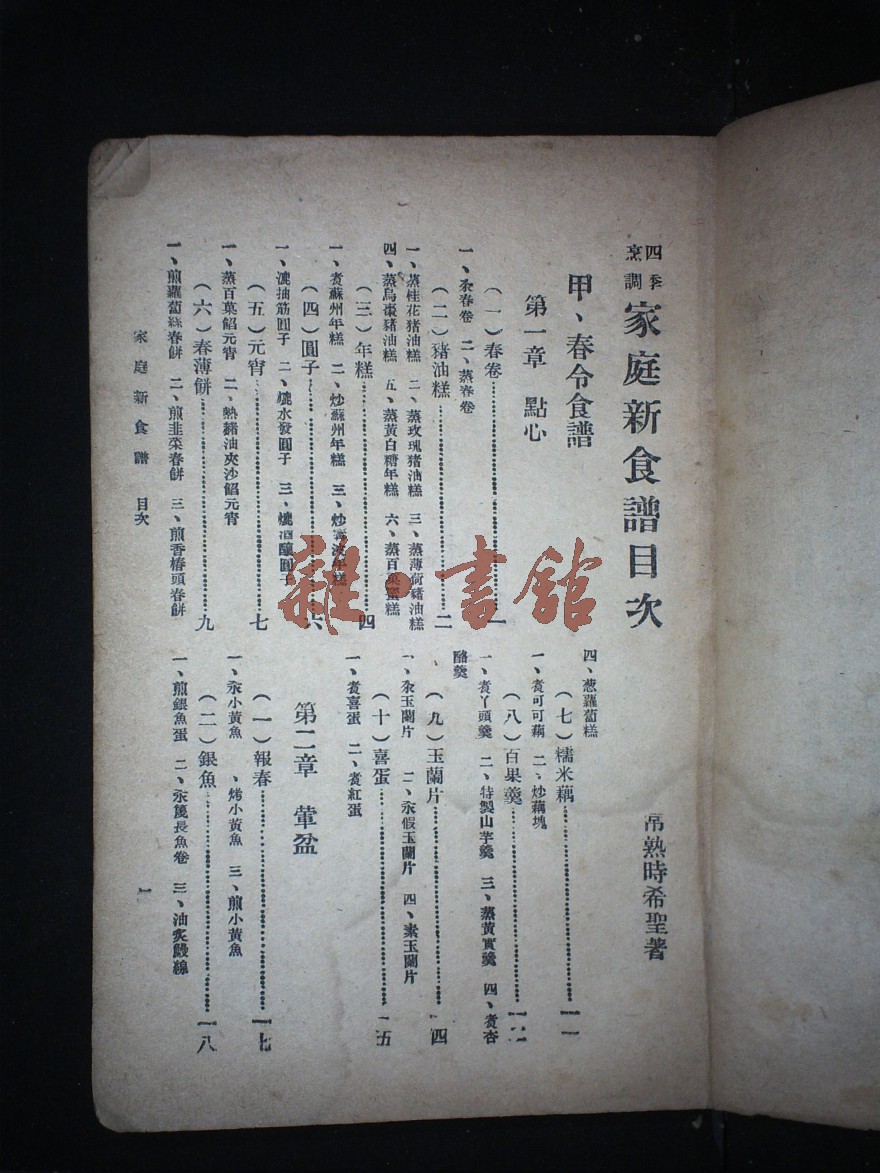 四季烹調 家庭新食譜目次
常熟時希聖著
甲、春令食譜
第一章 點心
（一）春卷……一
一、汆春卷 二、蒸春卷
（二）豬油糕……二
一、蒸桂花猪油糕 二、蒸玫瑰猪油糕 三、蒸薄荷豬油糕
四、蒸烏棗豬油糕 五、蒸黃白糖年糕 六、蒸百菓蜜糕
（三）年糕……四
一、煑蘇州年糕 二、炒蘇州年糕 三、炒寧波年糕
（四）圓子……六
一、漉抽筋圓子 二、漉水發圓子 三、漉酒釀圓子
（五）元宵……七
一、蒸百菓餡元宵 二、熱豬油夾沙餡元宵
（六）春薄餅……九
一、煎蘿蔔絲春餅 二、煎韭菜春餅 三、煎香椿頭春餅
四、葱蘿蔔糕
（七）糯米藕……一一
一、煑可可藕 二、炒藕塊
（八）百果羹……一二
一、煑丫頭羹 二、特製山芋羹 三、蒸黃實羹 四、煑杏
酪羹
（九）玉蘭片……一四
一、汆玉蘭片 二、汆假玉蘭片 四、素玉蘭片
（十）喜蛋……一五
一、煑喜蛋 二、煑紅蛋
第二章 葷盆
（一）報春……一七
一、汆小黃魚 、烤小黃魚 三、煎小黃魚
（二）銀魚……一八
一、煎銀魚蛋 二、汆篾長魚卷 三、油炙鰻線
家庭新食譜 目次
一
雜·書館